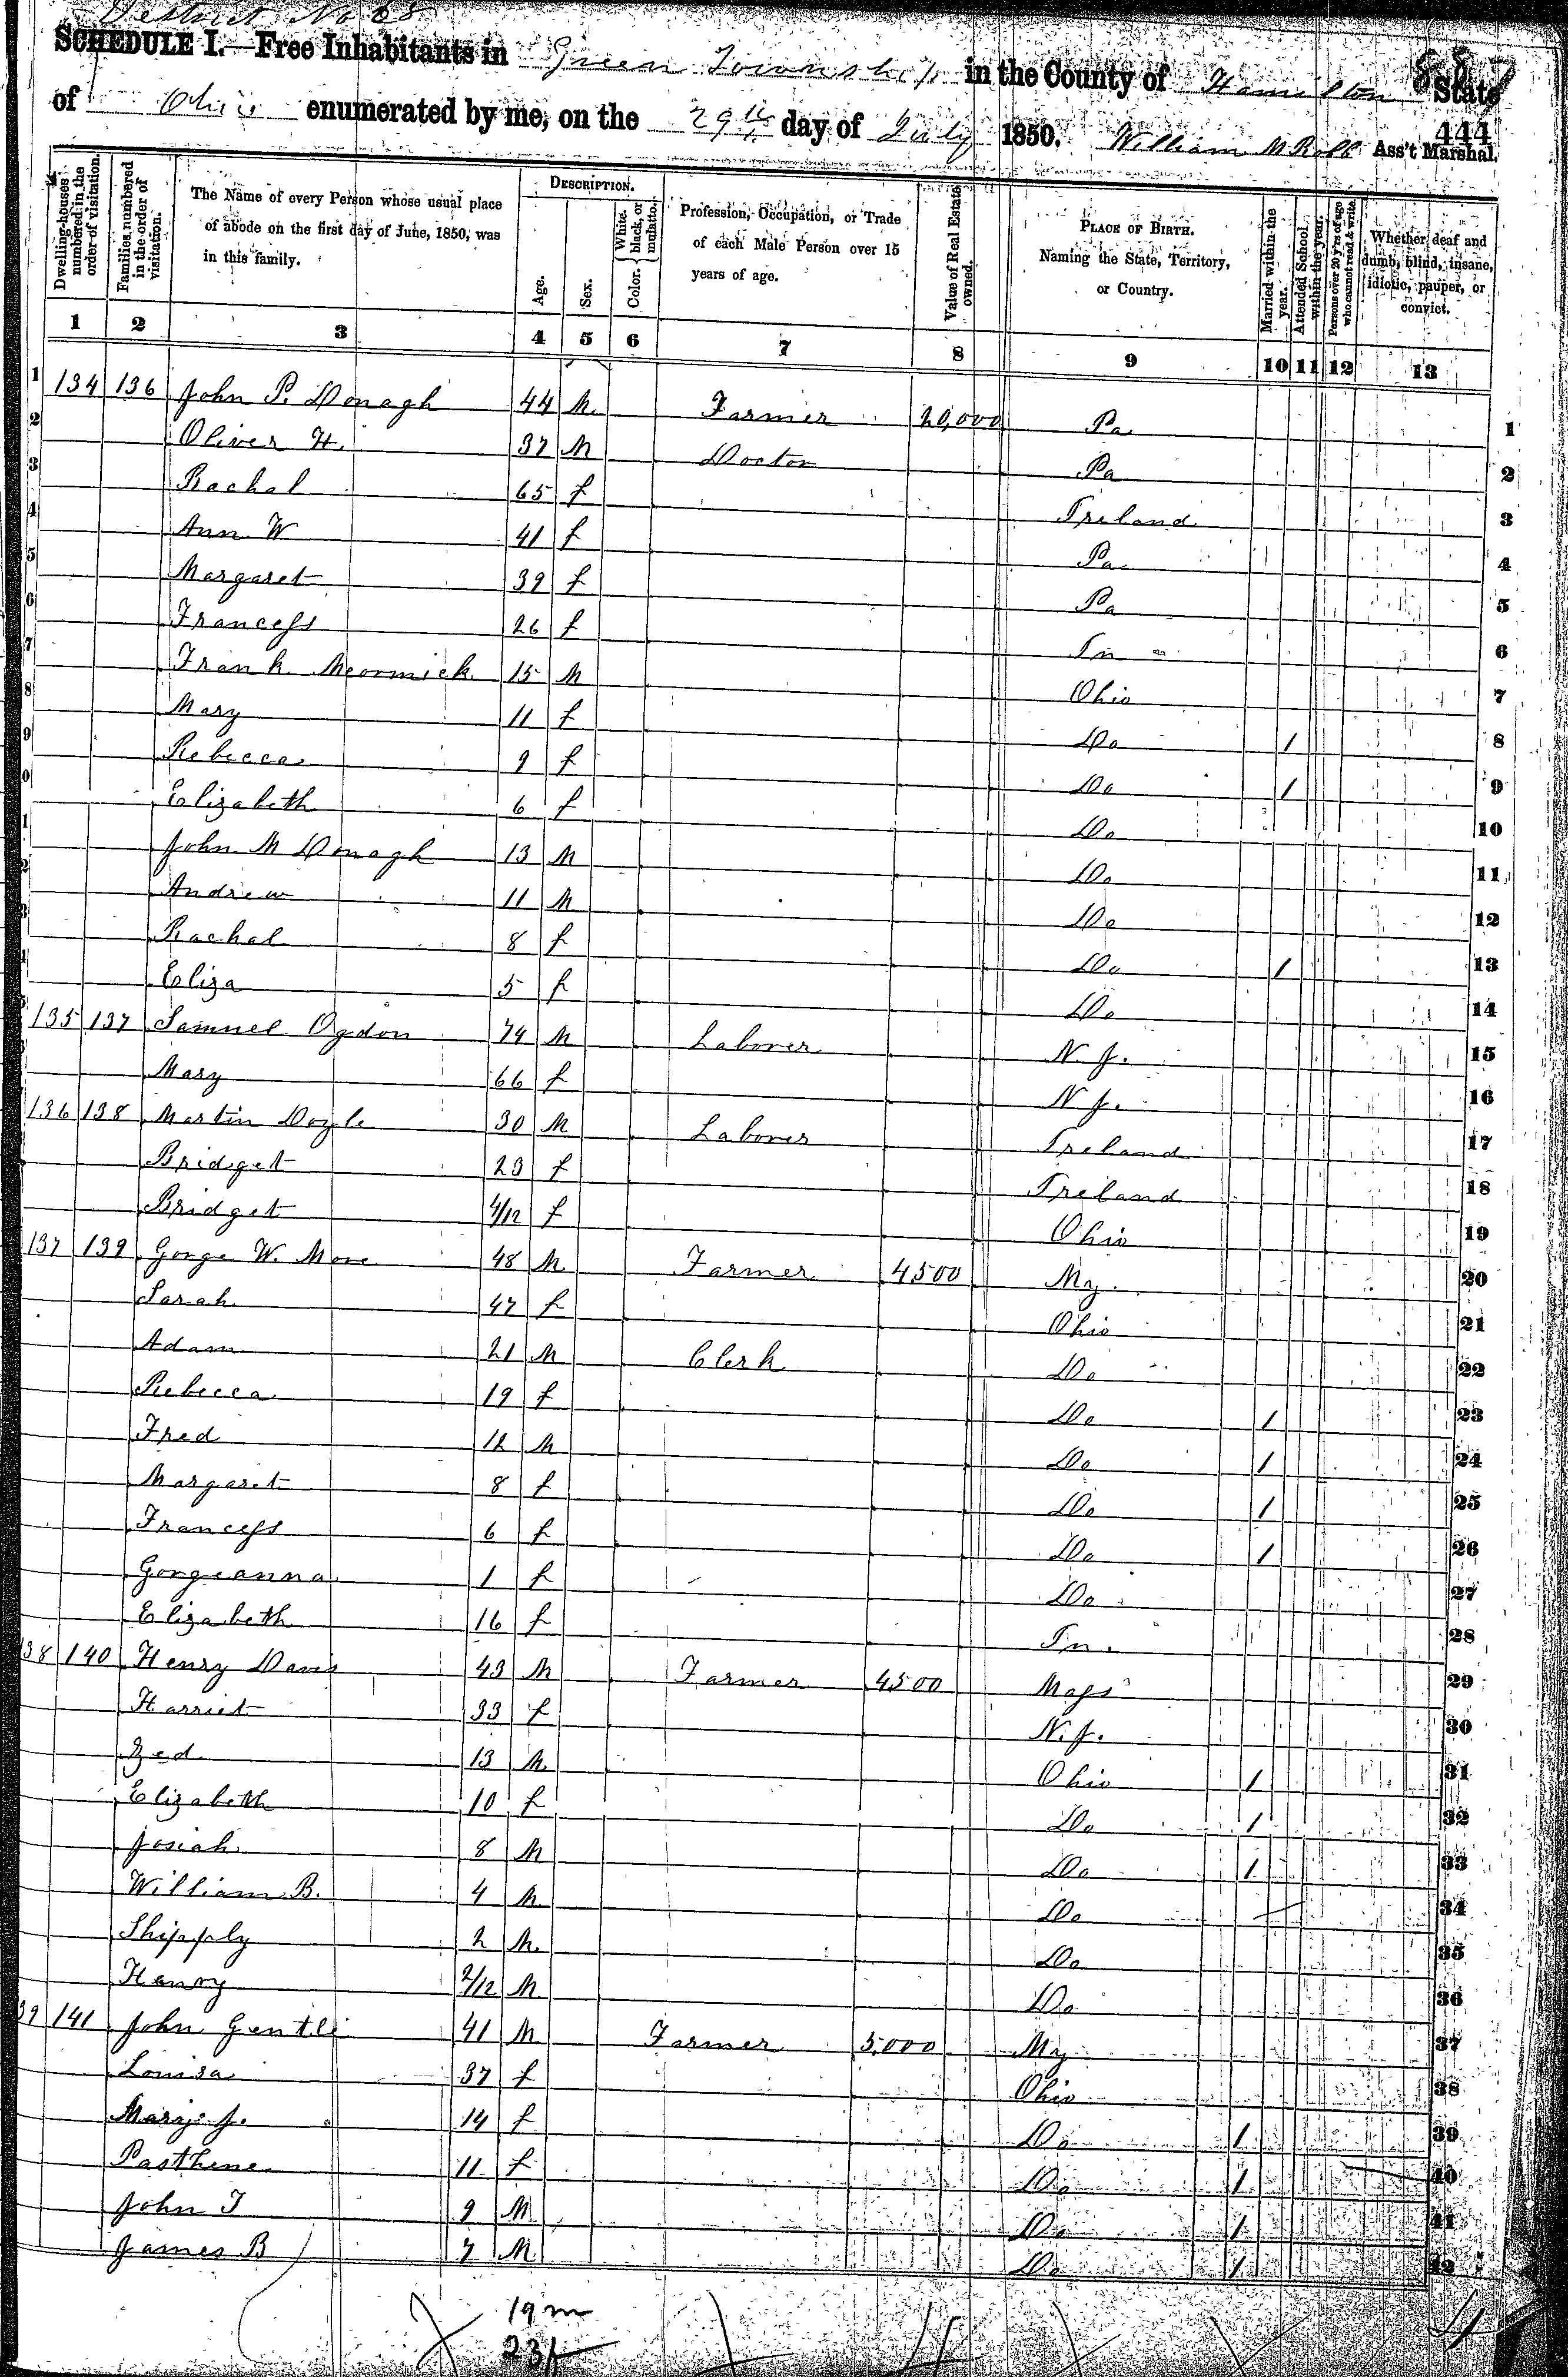 District No 68
SCHEDULE I.—Free Inhabitants in Green Township in the County of Hamilton State
of Ohio enumerated by me, on the 29th day of July 1850. William M Robb Ass't Marshal.
444
Dwelling-houses numbered in the order of visitation. Families numbered in the order of visitation. The Name of every Person whose usual place of abode on the first day of June, 1850, was in this family. DESCRIPTION. Age. Sex. Color. White, black, or mulatto. Profession, Occupation, or Trade of each Male Person over 15 years of age. Value of Real Estate owned. PLACE OF BIRTH. Naming the State, Territory, or Country. Married within the year. Attended School within the year. Persons over 20 y'rs of age who cannot read & write. Whether deaf and dumb, blind, insane, idiotic, pauper, or convict.
1 2 3 4 5 6 7 8 9 10 11 12 13
1 134 136 John P. Donagh 44 M Farmer 20,000 Pa 1
2 Oliver H. 37 M Doctor Pa 2
3 Rachal 65 f Ireland 3
4 Ann W 41 f Pa 4
5 Margaret 39 f Pa 5
6 Francess 26 f In 6
7 Frank Mcormick 15 M Ohio 7
8 Mary 11 f Do 1 8
9 Rebecca 9 f Do 1 9
0 Elizabeth 6 f Do 10
1 John M Donagh 13 M Do 11
2 Andrew 11 M Do 12
3 Rachal 8 f Do 1 13
4 Eliza 5 f Do 14
5 135 137 Samuel Ogdon 74 M Laborer N. J. 15
Mary 66 f N J. 16
136 138 Martin Doyle 30 M Laborer Ireland 17
Bridget 23 f Ireland 18
Bridget 4/12 f Ohio 19
137 139 Gorge W. More 48 M Farmer 4500 My 20
Sarah 47 f Ohio 21
Adam 21 M Clerk Do 22
Rebecca 19 f Do 1 23
Fred 12 M Do 1 24
Margaret 8 f Do 1 25
Francess 6 f Do 1 26
Gorgeanna 1 f Do 27
Elizabeth 16 f In. 28
138 140 Henry Davis 43 M Farmer 4500 Mass 29
Harriet 33 f N. J. 30
Zed 13 M Ohio 1 31
Elizabeth 10 f Do 1 32
Josiah 8 M Do 1 33
William B. 4 M Do 34
Shipply 2 M Do 35
Henry 2/12 M Do 36
39 141 John Gentle 41 M Farmer 5,000 My 37
Louisa 37 f Ohio 38
Mary J. 14 f Do 1 39
Pasthene 11 f Do 1 40
John T 9 M Do 1 41
James B 7 M Do 1 42
19 m
23 f